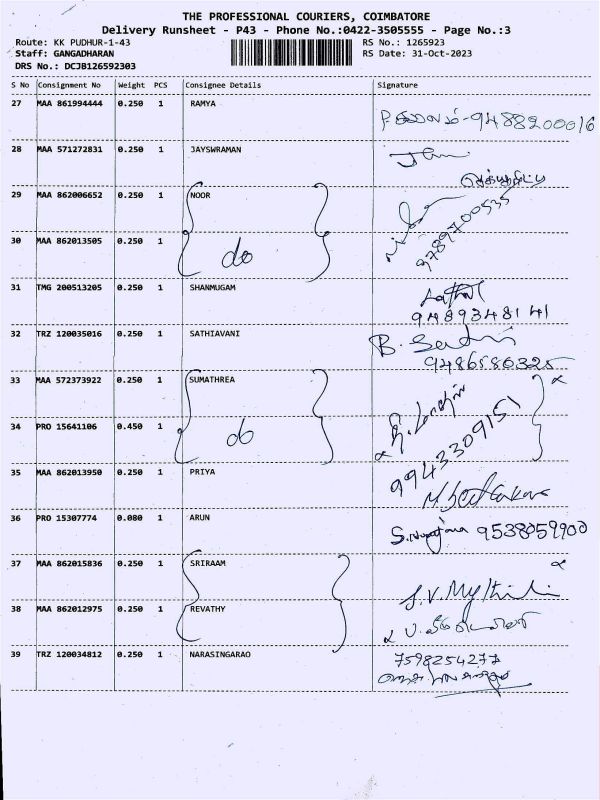 THE PROFESSIONAL COURIERS, COIMBATORE
Delivery Runsheet - P43 - Phone No.:0422-3505555 - Page No.:3
Route: KK PUDHUR-1-43 RS No.: 1265923
Staff: GANGADHARAN RS Date: 31-Oct-2023
DRS No.: DCJB126592303
S No Consignment No Weight PCS Consignee Details Signature
27 MAA 861994444 0.250 1 RAMYA 9488200016
28 MAA 571272831 0.250 1 JAYSWRAMAN
29 MAA 862006652 0.250 1 NOOR 9789700535
30 MAA 862013505 0.250 1 do
31 TMG 200513205 0.250 1 SHANMUGAM
9489348141
32 TRZ 120035016 0.250 1 SATHIAVANI B.
9486580325
33 MAA 572373922 0.250 1 SUMATHREA
34 PRO 15641106 0.450 1 do 9943309151
35 MAA 862013950 0.250 1 PRIYA
36 PRO 15307774 0.080 1 ARUN 9538059900
37 MAA 862015836 0.250 1 SRIRAAM
38 MAA 862012975 0.250 1 REVATHY
39 TRZ 120034812 0.250 1 NARASINGARAO 7598254277